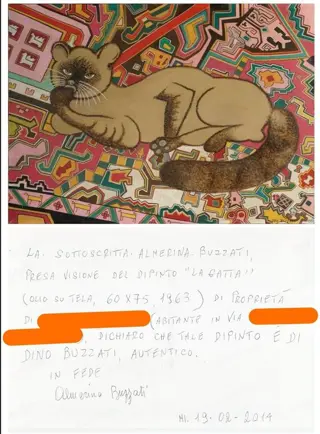 LA SOTTOSCRITTA ALMERINA BUZZATI,
PRESA VISIONE DEL DIPINTO "LA GATTA"
(OLIO SU TELA, 60 X 75, 1963) DI PROPRIETÀ
DI (ABITANTE IN VIA
, DICHIARO CHE TALE DIPINTO È DI
DINO BUZZATI, AUTENTICO.
IN FEDE
Almerina Buzzati
MI. 19-02-2014